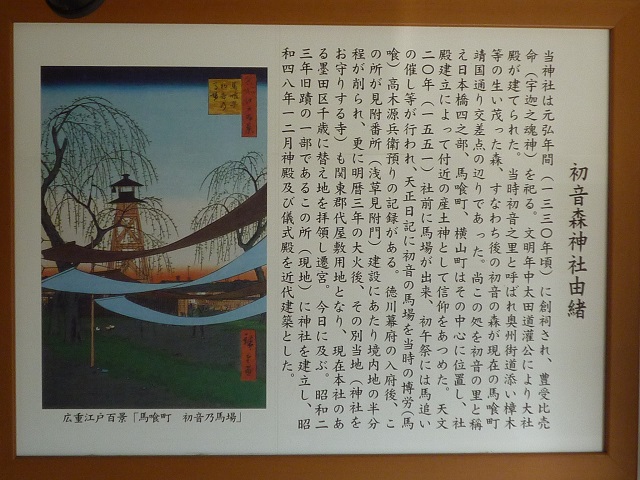 初音森神社由緒
当神社は元弘年間（一三三〇年頃）に創祠され、豊受比売
命（宇迦之魂神）を祀る。文明年中太田道灌公により大社
殿が建てられた。当時初音之里と呼ばれ奥州街道添い樟木
等の生い茂った森、すなわち後の初音の森が現在の馬喰町
靖国通り交差点の辺りであった。尚この処を初音の里と称
え日本橋四之部、馬喰町、横山町はその中心に位置し、社
殿建立によって付近の産土神として信仰をあつめた。天文
二〇年（一五五一）社前に馬場が出来、初午祭には馬追い
の催し等が行われ、天正日記に初音の馬場を当時の博労（馬
喰）高木源兵衛預りの記録がある。徳川幕府の入府後、こ
の所が見附番所（浅草見附門）建設にあたり境内地の半分
程が削られ、更に明暦三年の大火後、その別当地（神社を
お守りする寺）も関東郡代屋敷用地となり、現在本社のあ
る墨田区千歳に替え地を拝領し遷宮。今日に及ぶ。昭和二
三年旧蹟の一部であるこの所（現地）に神社を建立し、昭
和四八年一二月神殿及び儀式殿を近代建築とした。
広重江戸百景「馬喰町　初音乃馬場」